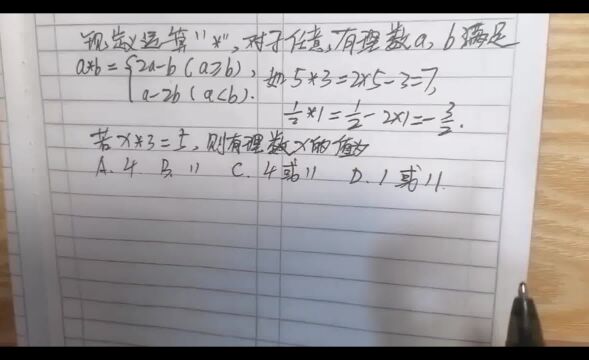 现定义运算"*",对于任意有理数a,b满足
a*b={2a-b(a≥b),如5*3=2×5-3=7,
a-2b(a<b).
1/2*1=1/2-2×1=-3/2.
若x*3=5,则有理数x的值为
A.4 B.11 C.4或11 D.1或11.